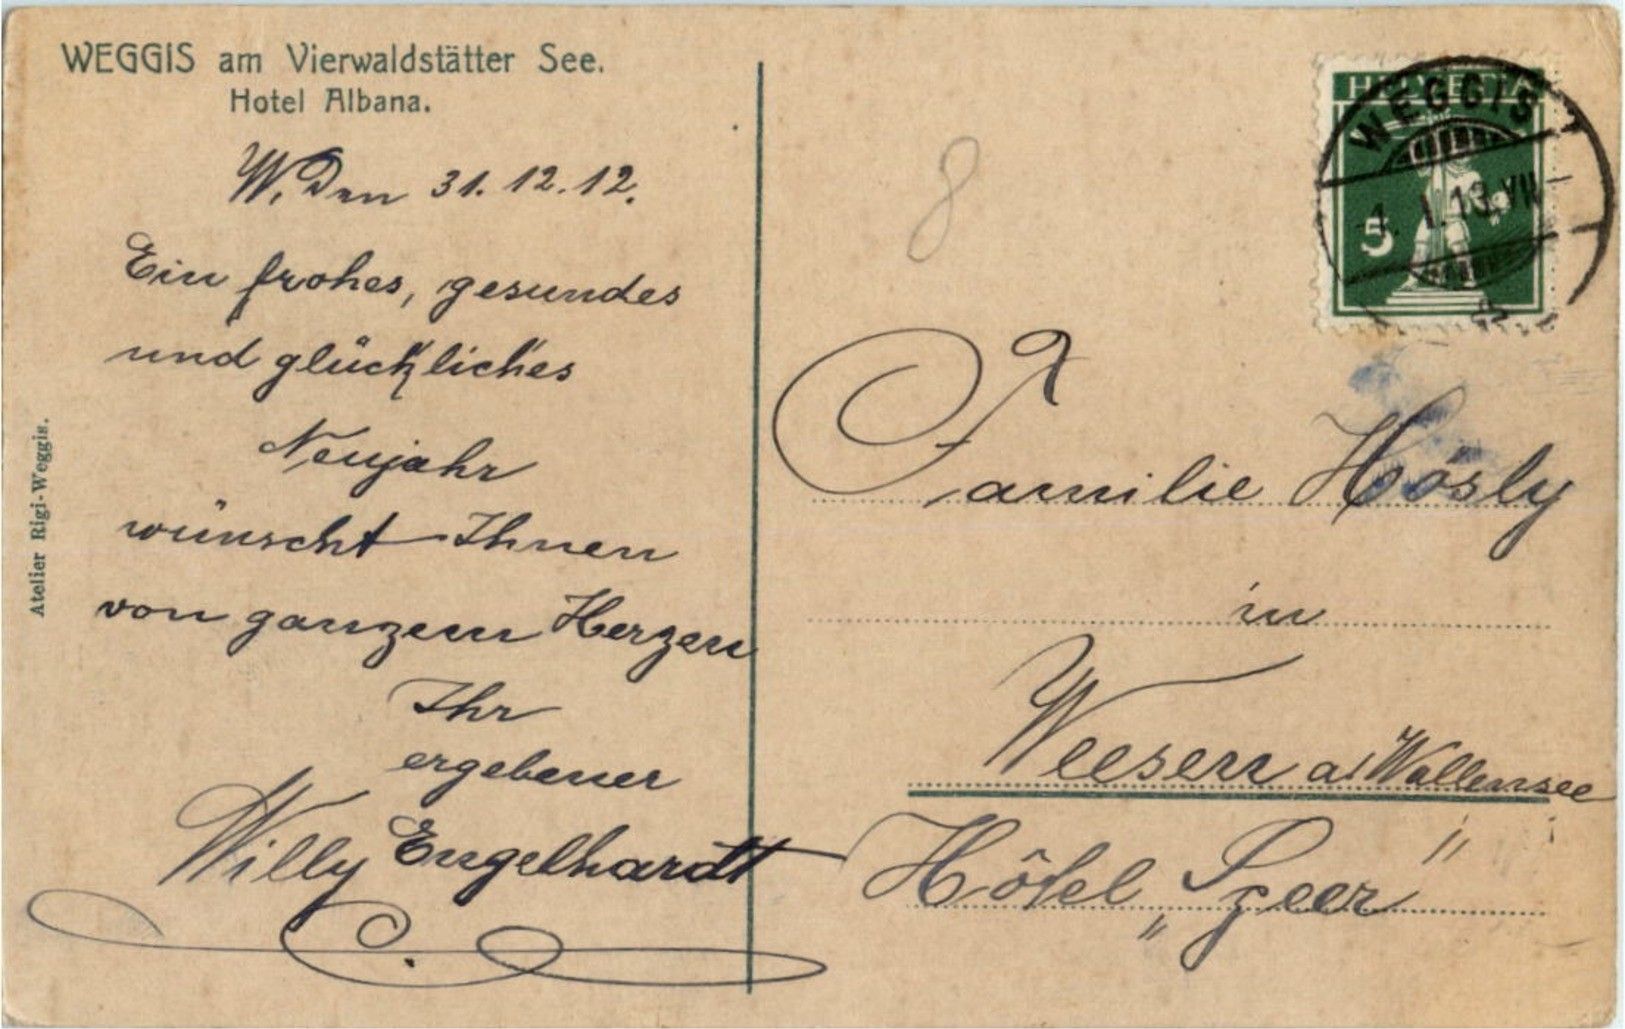 WEGGIS am Vierwaldstätter See.
Hotel Albana.
W. Den 31. 12. 12.
Ein frohes, gesundes
und glückliches
Neujahr
wünscht Ihnen
von ganzem Herzen
Ihr
ergebener
Willy Engelhardt
Atelier Rigi-Weggis.
8
HELVETIA
5
WEGGIS
1. I. 13. VII
Familie Hösly
in
Weesen a/Wallensee
Hôtel „Speer"